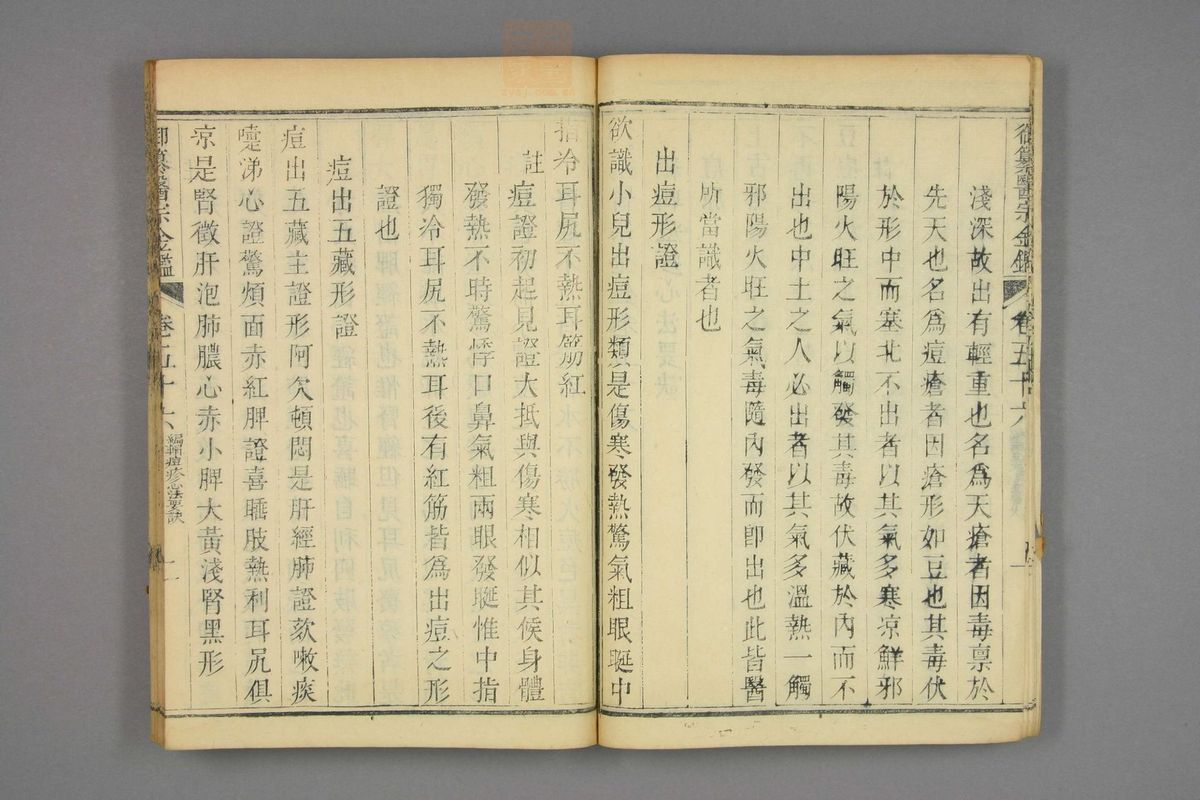 御纂醫宗金鑑
卷五十六
淺深故出有輕重也名爲天瘡者因毒禀於
先天也名爲痘瘡者因瘡形如豆也其毒伏
於形中而塞北不出者以其氣多寒凉鮮邪
陽火旺之氣以觸發其毒故伏藏於內而不
出也中土之人必出者以其氣多溫熱一觸
邪陽火旺之氣毒隨內發而即出也此皆醫
所當識者也
出痘形證
欲識小兒出痘形類是傷寒發熱驚氣粗眼䀮中
指冷耳尻不熱耳筋紅
註痘證初起見證大抵與傷寒相似其候身體
發熱不時驚悸口鼻氣粗兩眼發䀮惟中指
獨冷耳尻不熱耳後有紅筋皆爲出痘之形
證也
痘出五藏形證
痘出五藏主證形阿欠頓悶是肝經肺證欬嗽痰
嚏涕心證驚煩面赤紅脾證喜睡肢熱利耳尻俱
凉是腎徵肝泡肺膿心赤小脾大黃淺腎黑形
御纂醫宗金鑑
卷五十六
編輯痘疹心法要訣